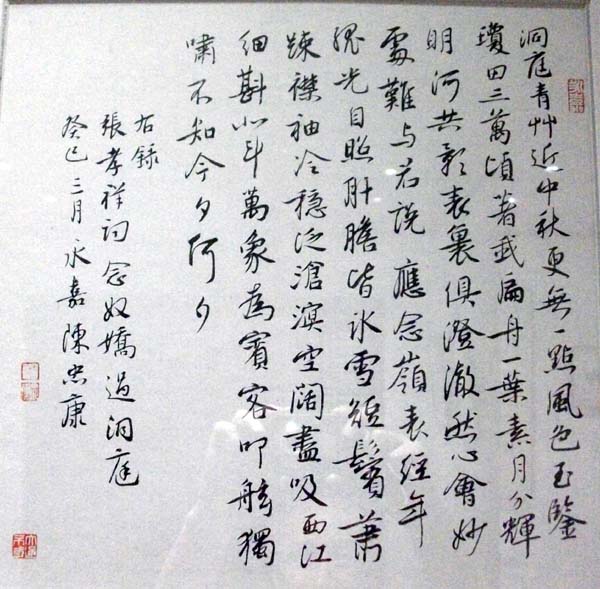 洞庭青艸近中秋更無一點風色玉鑒
瓊田三萬頃著我扁舟一葉素月分輝
明河共影表裏俱澄澈然心會妙
處難与君說應念嶺表經年
孤光自照肝膽皆冰雪短鬢蕭
踈襟袖冷穩泛滄溟空闊盡吸西江
細斟北斗萬象為賓客叩舷獨
嘯不知今夕何夕
右錄
張孝祥詞念奴嬌過洞庭
癸巳三月永嘉陳忠康